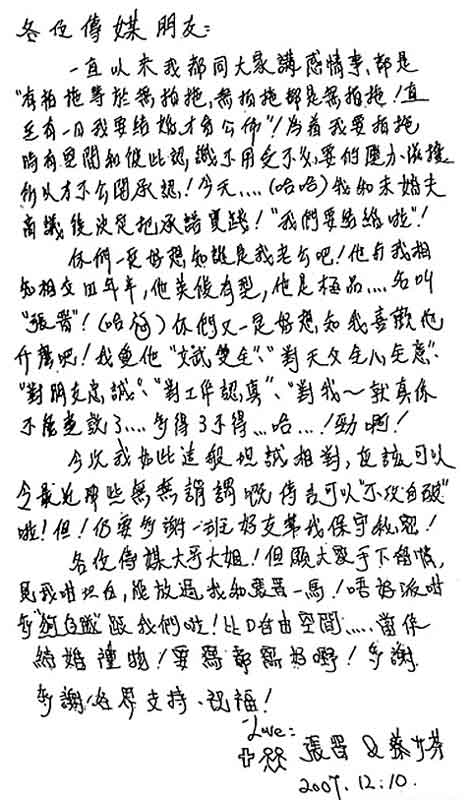 各位傳媒朋友:
一直以來我都同大家講感情事,都是
"有拍拖等於無拍拖,無拍拖都是無拍拖!直
至有一日我要結婚,才會公佈"!為着我要拍拖
時有空間和彼此認識不用受不必要的壓力滋擾
所以才不公開承認!今天....(哈哈)我和未婚夫
商議後決定把承諾實踐!"我們要結婚啦"!
你們一定好想知誰是我老公吧!他與我相
知相交四年半,他英俊有型,他是極品....名叫
"張晉"!(哈哈)你們又一定好想知我喜歡他
什麼吧!我鍾他"文武雙全"、"對天父全心全意"、
"對朋友忠誠"、"對工作認真"、"對我~就真係
不能盡說了....多得3不得...哈...!勁啊!
今次我如此這般坦誠相對,應該可以
令最近那些無無謂謂嘅傳言可以"不攻自破"
啦!但!仍要多謝一班好友幫我保守秘密!
各位傳媒大哥大姐!但願大家手下留情,
見我咁坦白,能放過我和張晉一馬!唔好派咁
多"狗仔隊"跟我們啦!比D自由空間.....當係
結婚禮物!要寫都寫好嘢!多謝
多謝各界支持、祝福!
Love:
張晉 & 蔡少芬
2007.12.10.